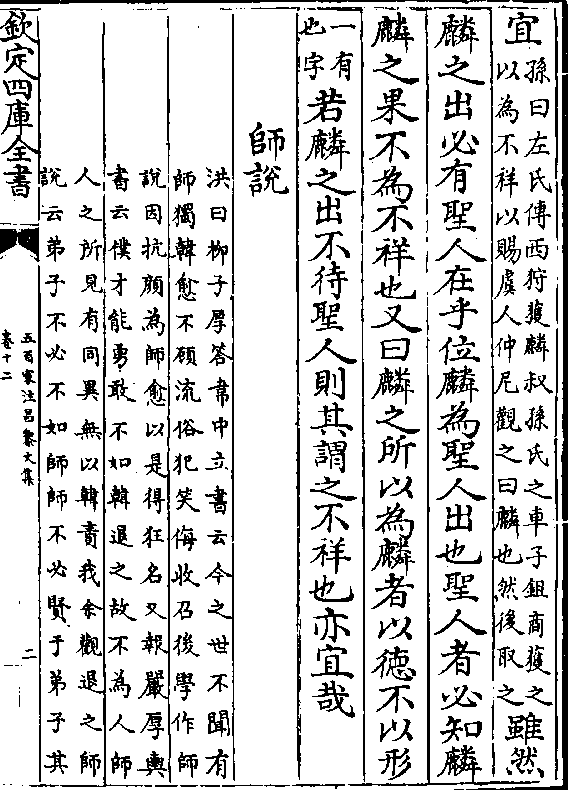 宜孫曰左氏傳西狩獲麟叔孫氏之車子鉏商獲之
以為不祥以賜虞人仲尼觀之曰麟也然後取之雖然
麟之出必有聖人在乎位麟為聖人出也聖人者必知麟
麟之果不為不祥也又曰麟之所以為麟者以徳不以形
一有
也字若麟之出不待聖人則其謂之不祥也亦宜哉
師説
洪曰栁子厚答韋中立書云今之世不聞有
師獨韓愈不顧流俗犯笑侮收召後學作師
説因抗顔為師愈以是得狂名又報嚴厚輿
書云僕才能勇敢不如韓退之故不為人師
人之所見有同異無以韓責我余觀退之師
説云弟子不必不如師師不必賢于弟子其
欽定四庫全書
五百家注昌黎文集
卷十二
二